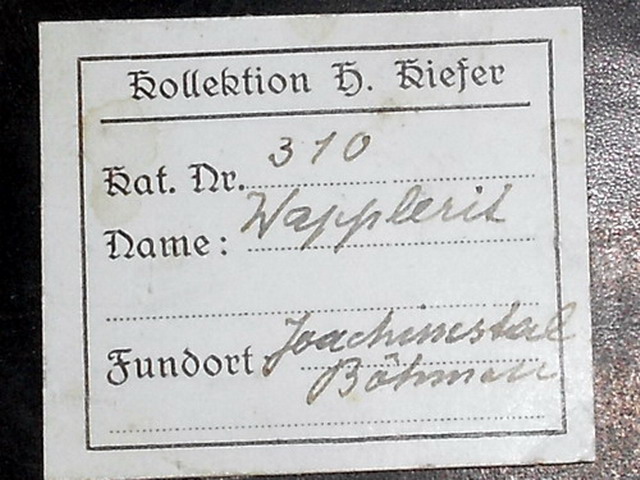 Kollektion H. Kiefer
Kat. Nr. 310
Name: Wapplerit
Fundort Joachimstal
Böhmen